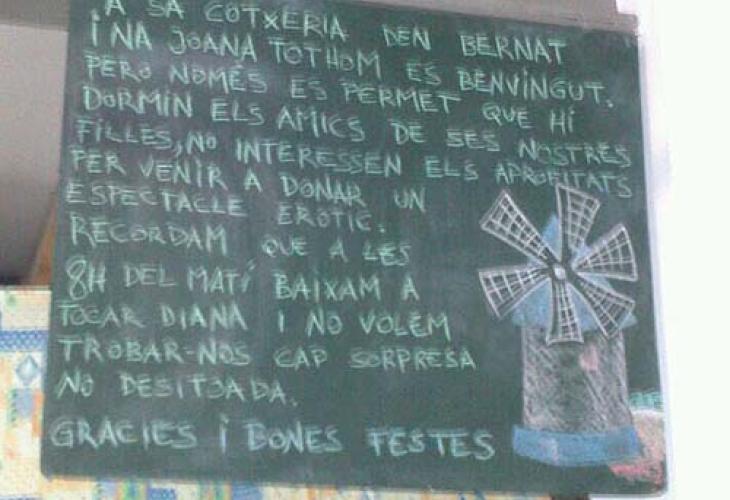 A SA COTXERIA DEN BERNAT
I NA JOANA TOTHOM ES BENVINGUT.
PERO NOMÉS ES PERMET QUE HI
DORMIN ELS AMICS DE SES NOSTRES
FILLES, NO INTERESSEN ELS APROFITATS
PER VENIR A DONAR UN
ESPECTACLE EROTIC.
RECORDAM QUE A LES
8H DEL MATÍ BAIXAM A
TOCAR DIANA I NO VOLEM
TROBAR-NOS CAP SORPRESA
NO DESITJADA.
GRACIES I BONES FESTES